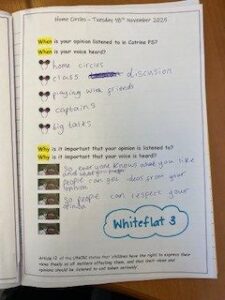 Home Circles – Tuesday 18th November 2025
When is your opinion listened to in Catrine PS?
When is your voice heard?
home circles
class discusion
playing with friends
captains
big talks
Why is it important that your opinion is listened to?
Why is it important that your voice is heard?
So everyone knows what you like
and what
people can get ideas from your
opinion
so people can respect your
opinion
Whiteflat 3
Article 12 of the UNCRC states that children have the right to express their
views freely on all matters affecting them, and that their views and
opinions should be listened to and taken seriously.